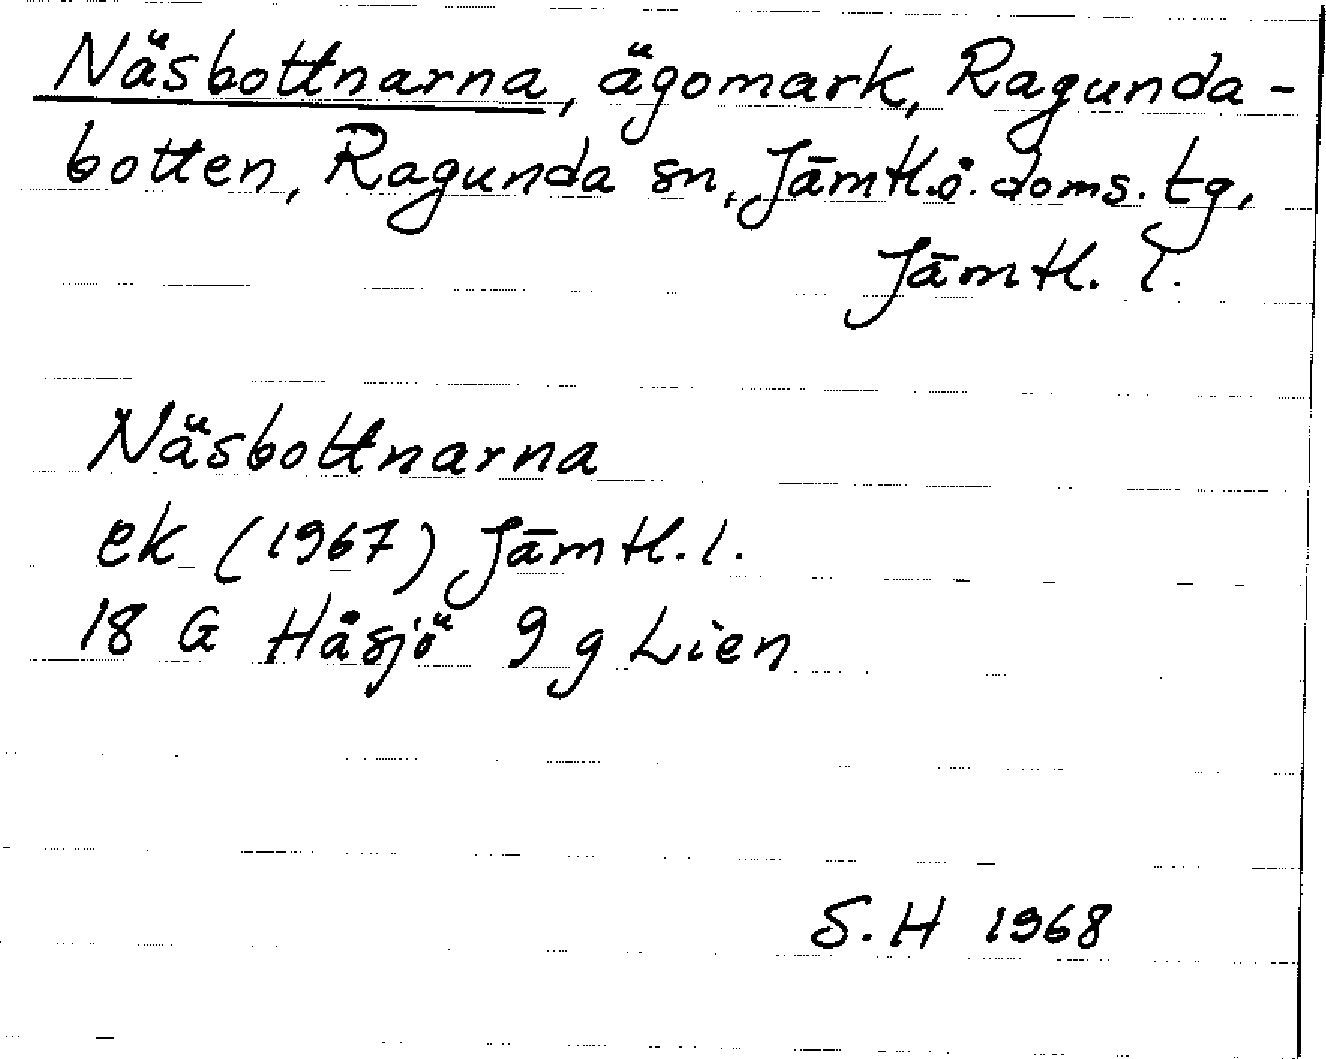 Näsbottnarna, ägomark, Ragunda-
botten, Ragunda sn, Jämtl.ö. doms. tg,
Jämtl. l.
Näsbottnarna
ek (1967) Jämtl. l.
18 G Håsjö 9 g Lien
S.H 1968